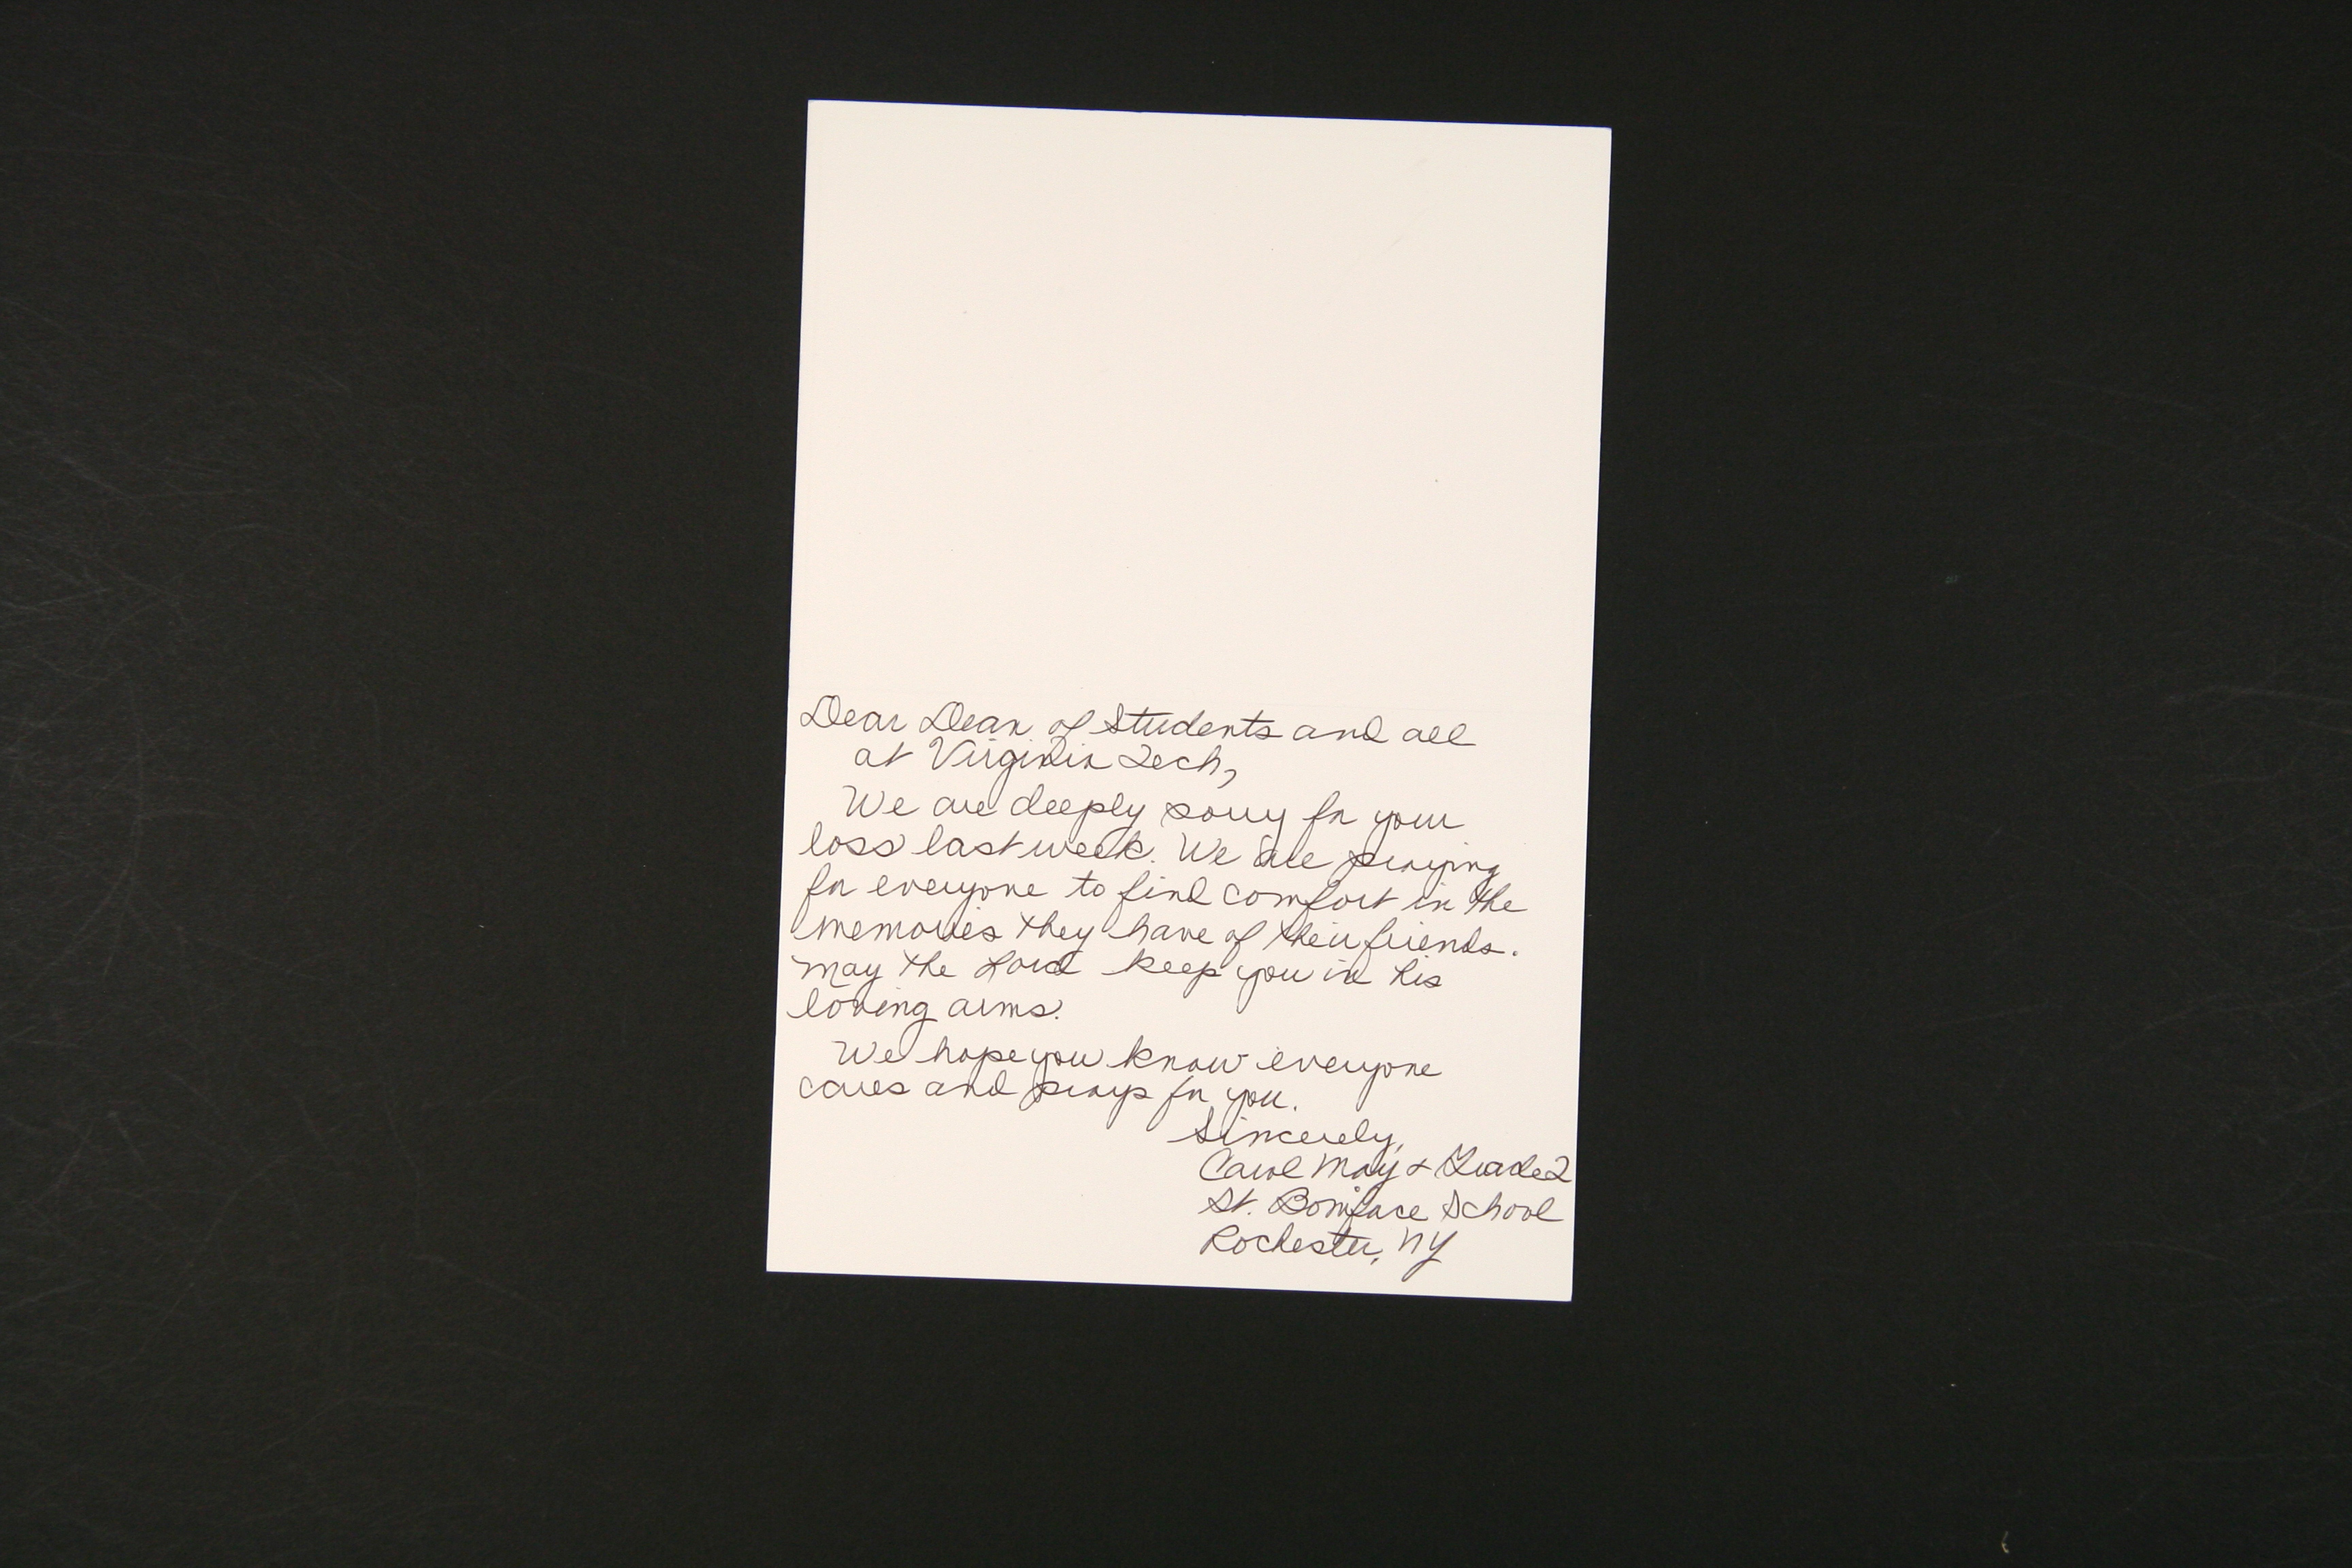 Dear Dean of Students and all
at Virginia Tech,
We are deeply sorry for your
loss last week. We are praying
for everyone to find comfort in the
memories they have of their friends.
May the Lord keep you in his
loving arms.
We hope you know everyone
cares and prays for you.
Sincerely,
Carol May & Grade 2
St. Boniface School
Rochester, NY